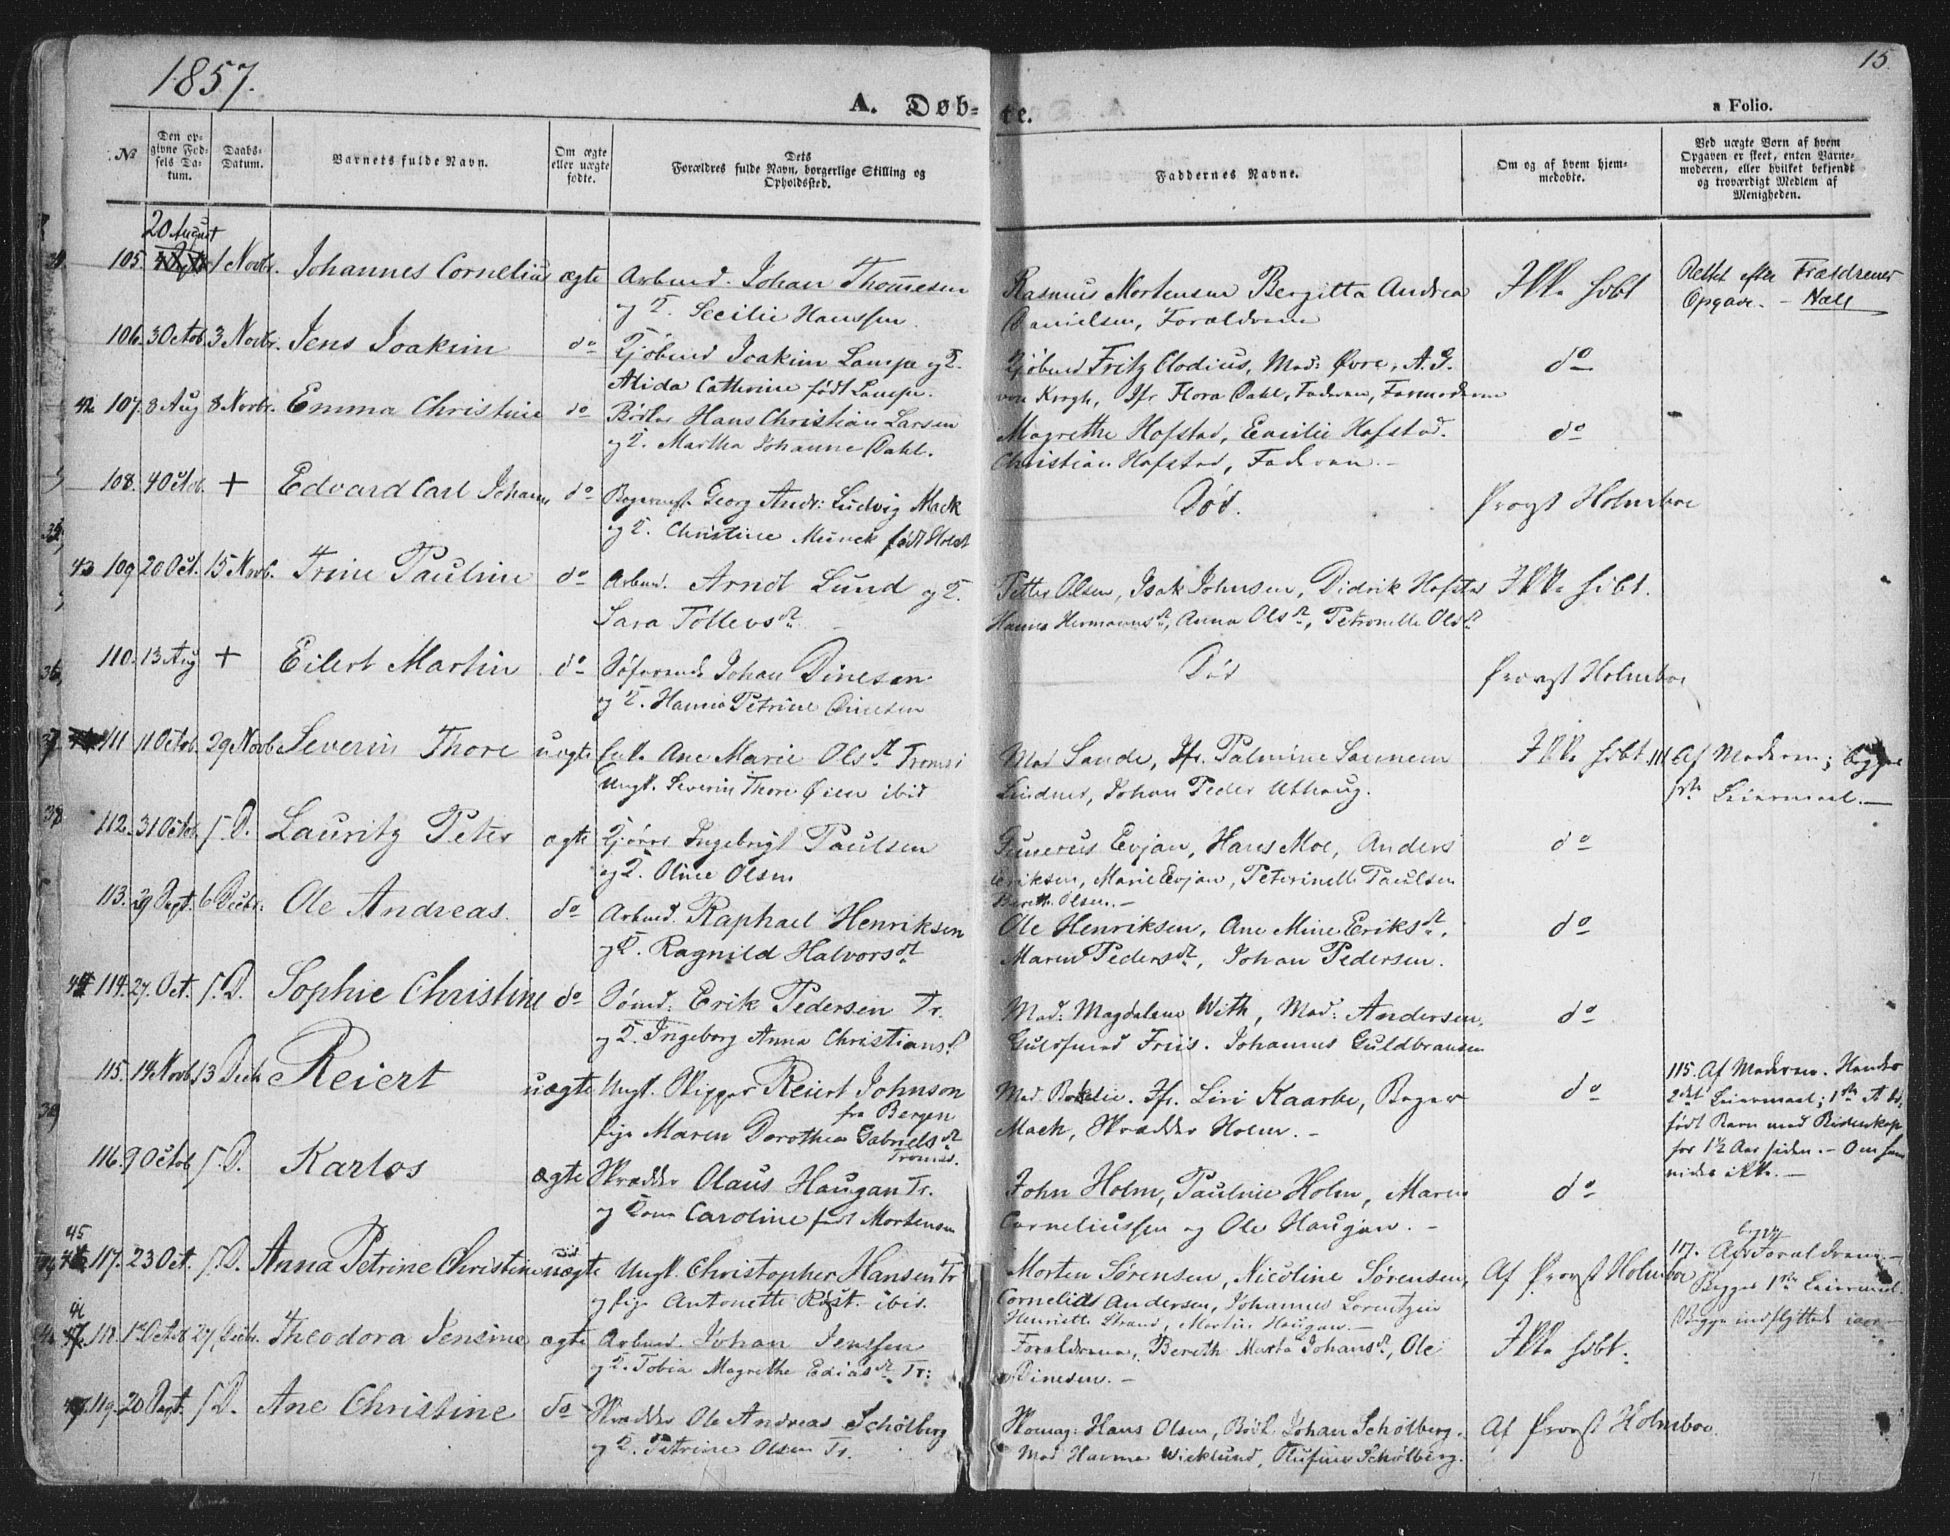 1857.
15
A. Døb-
te.
a Folio.
№
Den op-
givne Fød-
sels Da-
tum.
Daabs-
Datum.
Barnets fulde Navn.
Om ægte
eller uægte
fødte.
Dets
Forældres fulde Navn, borgerlige Stilling og
Opholdssted.
Faddernes Navne.
Om og af hvem hjem-
medøbte.
Ved uægte Børn af hvem
Opgaven er skeet, enten Barne-
moderen, eller hvilket bekjendt
og troværdigt Medlem af
Menigheden.
20 August
105. 1 Novbr. Johannes Cornelius ægte Arbmd. Johan Thomesen
og H. Secilie Hanssen
Rasmus Mortensen Bergitta Andrea Ikke hdbt Rettet efter Forældrenes
Danielsen, Forældrene Opgave. —
106. 3 Octob. 3 Novbr. Jens Joakim do Kjøbmd Joakim Lampe og H.
Alida Catherine født Lampe.
Kjøbmd Fritz Clodius, Mad: Øvre, A. G. do
von Krogh, Jfr Flora Dahl, Faderen, Farmoderen
42 107. 8 Aug 8 Novbr. Emma Christine do Bødker Hans Christian Larsen
og H. Martha Johanne Dahl.
Magrethe Hofstad, Emilie Hofstad. do
Christian Hofstad, Faderen. —
108. 4 Octob. + Edvard Carl Johan do Bagermst. Georg Andr: Ludvig Mack
og H. Christine Munck født Holst
Død. Provst Holmboe
43 109 20 Oct. 15 Novb. Trine Pauline do Arbmd. Arndt Lund og H.
Sara Tollevsdt
Petter Olsen, Isak Johnsen, Didrik Hofstad Ikke hdbt.
Hanna Hermannsdt, Anna Olsdt, Petronelle Olsdt
110. 13 Aug + Eilert Martin do Søfarende Johan Dinesen
og H. Hanna Petrine Dinesen
Død Provst Holmboe
111 11 Octob. 29 Novb. Severin Thore uægte Ane Marie Olsdt Tromsø
Ungk. Severin Thore Øien ibid
Mad Sande, Jfr. Palmine Sannem Ikke hdbt. 111 Af Moderen; begges
Lindner, Johan Peder Uthaug. 1ste Leiermaal. —
112. 31 Octob. 5. D. Lauritz Peter ægte Ingebrigt Paulsen
og H. Oline Olsen
Gunerus Evjan, Hans Moe, Anders do
Eriksen, Marie Evjan, Peterinelle Paulsen
Bereth Olsen. —
113. 29 Sept. 6 Decbr. Ole Andreas. do Arbmd. Raphael Henriksen
og H. Ragnild Halvorsdt
Ole Henriksen, Ane Mine Eriksdt. do
Maren Pedersdt, Johan Pedersen.
44 114. 27. Oct. S. D. Sophie Christine do Sømd. Erik Pedersen Tr.
og H. Ingeborg Anna Christiansd.
Mad: Magdalene With, Mad: Andersen, do
Guldsmed Friis. Johannes Guldbransen
115. 14 Novb 13 Decbr Reiert uægte Ungk. Skipper Reiert Johnson
fra Bergen
Pige Maren Dorothea Gabrielsdt
Tromsø.
Mad. Jfr. Liri Kaarbø, Bager do
Mack, Skrædder Holm. —
115. Af Moderen. Hendes
2det Leiermaal; 1ste
født Barn med
for 1½ Aar siden. — Om ham
vides ikke. —
116. 9 Octob S. D. Karlos ægte Skrædder Olaus Haugan Tr.
og Kone Caroline født Mortensen
John Holm, Pauline Holm, Maren do
Corneliussen og Ole Haugan. —
45 117. 23 Oct. S. D. Anna Petrine Christine uægte Ungk. Christopher Hansen Tr
og Pige Antonette Røst. ibid.
Morten Sørensen, Nicoline Sørensen, Af Provst Holmboe
Cornelius Andersen, Johannes Lorentzen
Henriette Strand, Martin Haugan. —
117. Af begge Forældrene. —
Begges 1ste Leiermaal.
Begge indflyttede iaar. —
46 118. 1 Octob 27. Decbr. Theodora Jensine ægte Arbmd. Johan Jenssen
og H. Tobia Magrethe Ediasdt Tr:
Forældrene, Bereth Marta Johansdt, Ole Ikke hdbt.
Dinesen. —
47. 119. 20 Sept. S. D. Ane Christine do Skrædder Ole Andreas Schølberg
og H. Petrine Olsen Tr.
Skomag: Hans Olsen, Bødk. Johan Schølberg. Af Provst Holmboe.
Mad Hanna Wicklund, Olufine Schølberg.